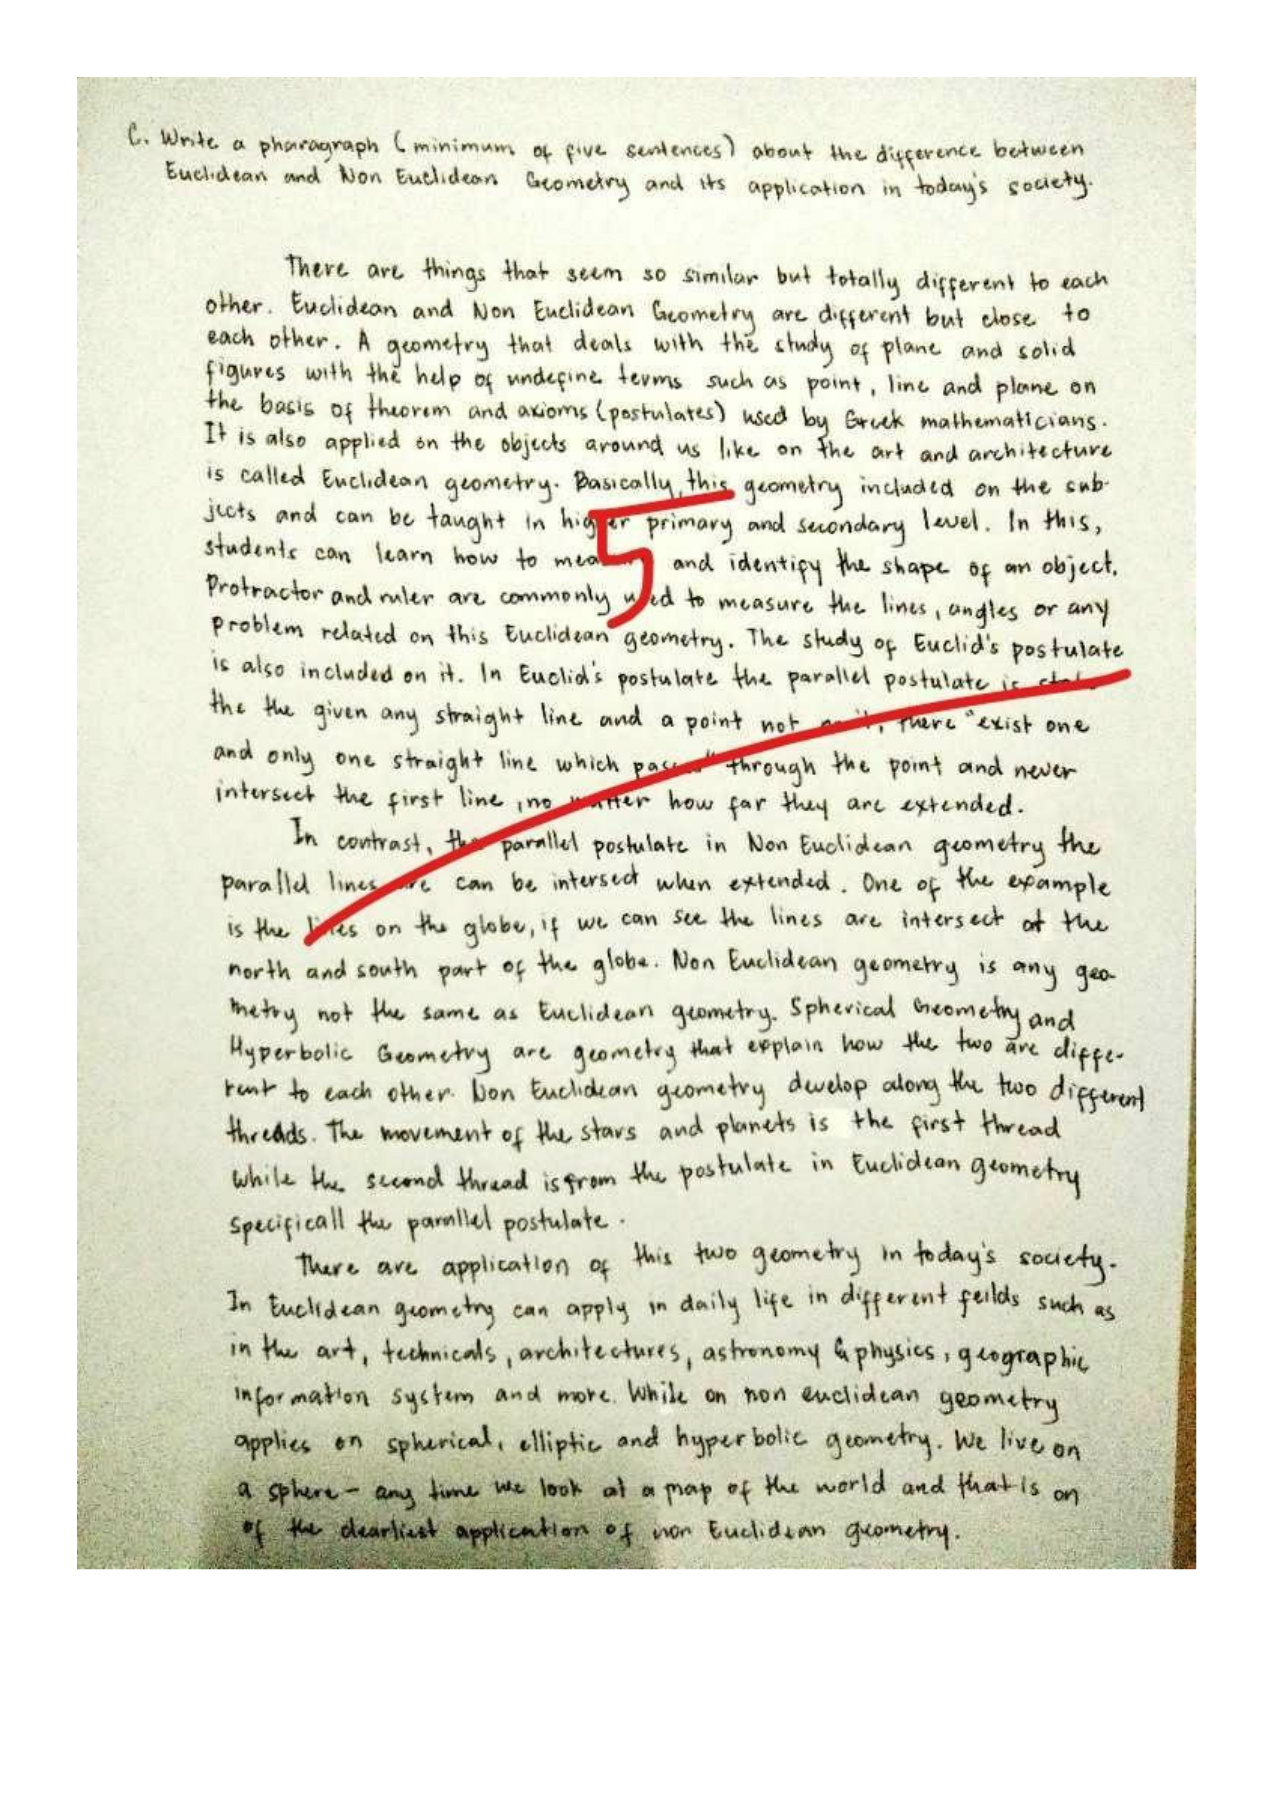 C. Write a pharagraph (minimum of five sentences) about the difference between
Euclidean and Non Euclidean Geometry and its application in today's society.
There are things that seem so similar but totally different to each
other. Euclidean and Non Euclidean Geometry are different but close to
each other. A geometry that deals with the study of plane and solid
figures with the help of undefine terms such as point, line and plane on
the basis of theorem and axioms (postulates) used by Greek mathematicians.
It is also applied on the objects around us like on the art and architecture
is called Euclidean geometry. Basically, this geometry included on the sub-
jects and can be taught in higher primary and secondary level. In this,
students can learn how to and identify the shape of an object.
Protractor and ruler are commonly used to measure the lines, angles or any
problem related on this Euclidean geometry. The study of Euclid's postulate
is also included on it. In Euclid's postulate the parallel postulate is
the the given any straight line and a point not on it, there "exist one
and only one straight line which passes" through the point and never
intersect the first line, no matter how far they are extended.
In contrast, the parallel postulate in Non Euclidean geometry the
parallel lines are can be intersect when extended. One of the example
is the lines on the globe, if we can see the lines are intersect at the
north and south part of the globe. Non Euclidean geometry is any geo-
metry not the same as Euclidean geometry. Spherical Geometry and
Hyperbolic Geometry are geometry that explain how the two are diffe-
rent to each other. Non Euclidean geometry develop along the two different
threads. The movement of the stars and planets is the first thread
while the second thread is from the postulate in Euclidean geometry
specificall the parallel postulate.
There are application of this two geometry in today's society.
In Euclidean geometry can apply in daily life in different feilds such as
in the art, technicals, architectures, astronomy & physics, geographic
information system and more. While on non euclidean geometry
applies on spherical, elliptic and hyperbolic geometry. We live on
a sphere - any time we look at a map of the world and that is on
of the clearliest application of non Euclidean geometry.
5